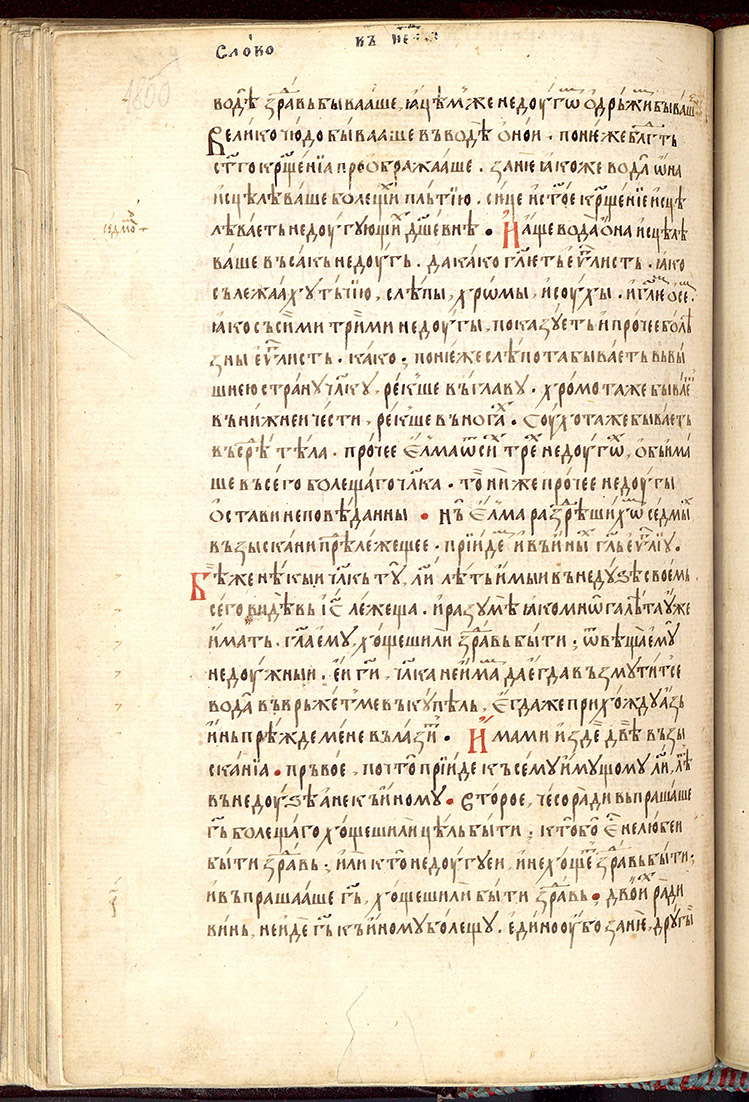 Сло́во
въ не
1800
водѣ̀ здра́въ быва́аше, ꙗ҆цѣ́мже недѹ́гѡ ѻ҆дръжи́бываш
Вели́ко чю́до быва́аше въ водѣ̀ ѻ҆но́и · поне́же бл҃гть
ст҃го кр҃ще́нїа прѻѡбража́аше · зане́ ꙗ҆́коже вода̀ ѡ҆́на
и҆сцѣлѣва́ше болѣ́щи пль́тїю · си́це и҆ ст҃о́е кр҃ще́нїе и҆сцѣ
лѣва́еть недѹгѹ́ющи дш҃е́внѣ · И҆ а҆́ще вода̀ ѻ҆́на и҆сцѣлѣ
седмо́
ва́ше въса́къ недѹ́гь · да ка́ко гл҃еть є҆ѵⷢ҇листь · ꙗ҆́ко
сълежа́ахѹ ть́чїю, слѣ́пы, хрѡ́мы, и҆ сѹ́хы · и҆ гл҃ю ѻ҆се ·
ꙗ҆́ко съ си́ми трьми́ недѹ́гы, показѹ́еть и҆ про́чее болѣ́
зны є҆ѵⷢ҇листь · ка́ко ; поне́же слѣпота̀ быва́еть въ вы́
шнею странѹ̀ чл҃кѹ, ре́кше въ главѹ̀ · хромота́же быва́е
въ ни́жнеи че́сти, ре́кше въ нога́ · Сѹхота́же быва́еть
въ срⷣѣ тѣ́ла · про́чее є҆лма̀ ѿ си́ тре́ недѹ́гѡ, ѻ҆бьима́
ше въсего̀ болѣ́щаго чл҃ка · то́ ни́же про́чее недѹ́гы
ѻ҆ста́ви неповѣ́данны · нъ̀ є҆лма̀ разⷣрѣши́хѡ седмы́
възыска́ни прⷣѣлежещее · прїи́де́ и҆ въ и҆ны́ гл҃ь є҆ѵⷢ҇лїѹ ·
Бѣ́же нѣ́кыи чл҃къ тѹ̀, л҃и лѣ́ть и҆мы́и въ недѹ́зѣ свое́мь
сего̀ ви́дѣвь і҆с҃ лежѐща · и҆ разѹмѣ̀ ꙗ҆́ко мнѡ́га лѣ́та ѹ҆же
и҆́мать · гл҃а є҆мѹ̀, хо́щеши ли здра́вь бы́ти ; ѿвѣща̀ є҆мѹ̀
недѹ́жныи · є҆́и гⷭ҇и · чл҃ка не и҆ма́ да є҆гда̀ възмѹти́тсе
вода̀ въврь́жет ме въ кѹ́пѣль, є҆гда́же прихождѹ̀ а҆́зь
и҆́нь прѣ́жде ме́не въла́зи · И҆́мами и҆ зде̑ двѣ̀ възы
ска́нїа · пръ́вое, почто̀ прїи́де къ семѹ̀ и҆мѹ́щомѹ л҃и, лѣ̀
въ недѹ́зѣ а҆ не къ и҆но́мѹ · Второ́е, чесо́ ра́ди въпраша́аше
гⷭ҇ь болѣ́щаго хо́щеши ли цѣ́ль бы́ти ; кто́бо є҆̀ нелю́беи
бы́ти здра́вь ; и҆ли́ кто недѹ́гѹеи, и҆ не хо́ще здра́вь бы́ти ;
и҆ въпраша́аше гⷭ҇ь, хо́щеши ли бы́ти здра́вь · двои́ ра́ди
ви́нь, не и҆́де гⷭ҇ь къ и҆но́мѹ болѣ́щѹ · є҆ди́но ѹ҆́бо зане́, дрѹгы́